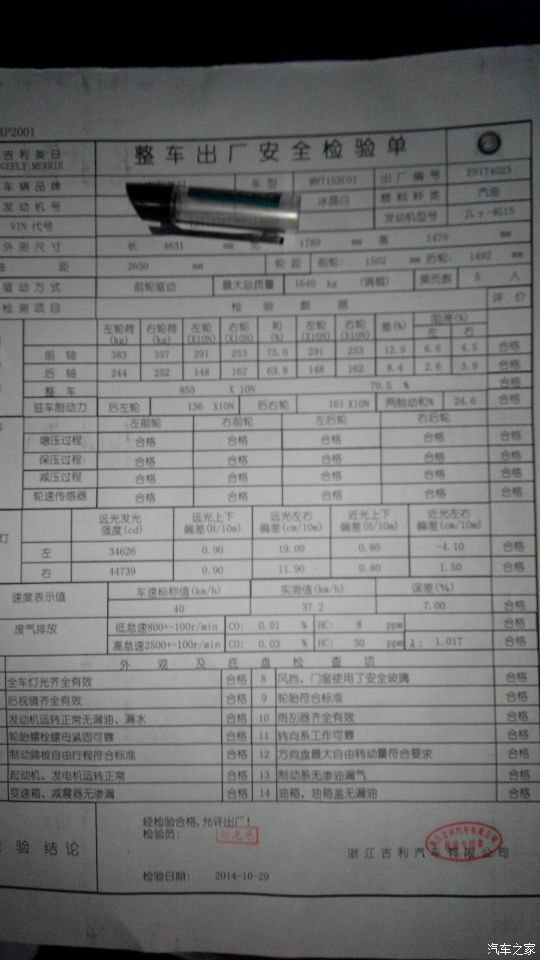 XP2001
吉利美日 整车出厂安全检验单
GEELY MERRIE
车辆品牌 车型 MR7153C01 出厂编号 EN174023
发动机号 冰晶白 燃料种类 汽油
VIN 代号 发动机型号 JLγ-4G15
外形尺寸 长 4631 mm 宽 1789 mm 高 1470 mm
轴 距 2650 mm 轮距 前轮: 1502 mm 后轮: 1492 mm
驱动方式 前轮驱动 最大总质量 1640 kg (满载) 乘员数 5 人
检测项目 检 验 数 据 评 价
左轮荷(kg) 右轮荷(kg) 左轮(X10N) 右轮(X10N) 和(%) 左轮(X10N) 右轮(X10N) 差(%) 阻滞(%) 左 右
前 轴 383 357 291 253 75.0 291 253 12.9 6.6 4.5 合格
后 轴 244 252 148 162 63.8 148 162 8.4 2.6 3.9 合格
整 车 855 X 10N 70.5 % 合格
驻车制动力 后左轮 136 X10N 后右轮 161 X10N 两制动和% 24.6 合格
左前轮 右前轮 左后轮 右后轮
增压过程 合格 合格 合格 合格 合格
保压过程 合格 合格 合格 合格 合格
减压过程 合格 合格 合格 合格 合格
轮速传感器 合格 合格 合格 合格 合格
灯 远光发光强度(cd) 远光上下偏差(H/10m) 远光左右偏差(cm/10m) 近光上下偏差(H/10m) 近光左右偏差(cm/10m)
左 34626 0.90 19.00 0.80 -4.10 合格
右 44739 0.90 11.90 0.80 1.50 合格
速度表示值 车速标称值(km/h) 实测值(km/h) 误差(%)
40 37.2 7.00 合格
废气排放 低怠速800+-100r/min CO: 0.01 % HC: 8 ppm 合格
高怠速2500+-100r/min CO: 0.03 % HC: 30 ppm λ: 1.017 合格
外 观 及 底 盘 检 查 项
全车灯光齐全有效 合格 8 风挡、门窗使用了安全玻璃 合格
后视镜齐全有效 合格 9 轮胎符合标准 合格
发动机运转正常无漏油、漏水 合格 10 雨刮器齐全有效 合格
轮胎螺栓螺母紧固可靠 合格 11 转向系工作可靠 合格
制动踏板自由行程符合标准 合格 12 方向盘最大自由转动量符合要求 合格
起动机、发电机运转正常 合格 13 制动系无渗油漏气 合格
变速箱、减震器无渗漏 合格 14 油箱、油箱盖无漏油 合格
经检验合格,允许出厂!
检验员:
检验结论 浙江吉利汽车有限公司
检验日期: 2014-10-29
汽车之家